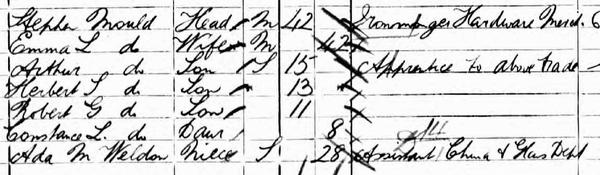 Stephen Mould Head M 42 Ironmonger Hardware Merch.
Emma L. do Wife M 42
Arthur do Son S 15 Apprentice to above trade
Herbert S. do Son 13
Robert G do Son 11
Constance L. do Daur 8
Ada M Weldon Niece S 28 Assistant China & Glass Dept